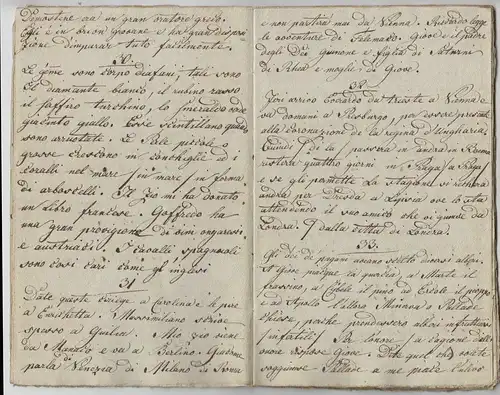 Demostene era un gran oratore greco.
Egli è un buon giovane e ha gran disposi-
zione d'imparar tuto facilmente.
30.
Le géme sono corpo diafani, tali sono
il diamante bianco, il rubino rosso
il saffiro turchino, lo smeraldo verde
giacinto giallo. Esse scintillano quando
sono arruotate. Le Perle piccole o
grosse crescono in conchiglie ed i
coralli nel mare (in mare) in forma
di arboscelli. Il Zio mi ha donato
un libro francese. Goffredo ha
una gran provigione di vini ongaresi
e austriachi. I cavalli spagnuoli
sono così cari come gl'inglesi
31
Date queste ciriege a Carolina e le pere
a Enrichetta. Massimiliano scrive
spesso a Guilen. Mio zio viene
da Monaco e va a Berlino.
parla di Venezia di Milano di Roma
e non partirà mai da Vienna. Riccardo legge
le avventure di Telemaco. Giove è il padre
degli Dei Giunone è figlia di Saturno
di Rhea e moglie di Giove.
32.
Jeri arrivò Edoardo da Trieste a Vienna e
va domani a Presburgo, per essere presente
alla Coronazione de la regina d'Ungheria.
Quindi si passerà in andrà in Boemia
resterà quattro giorni in Praga (a Praga)
e se gli permette la stagione si recherà
andrà per Dresda a Lipsia ove lo sta
attendendo il suo amico che vi giunse da
Londra. (dalla città di Londra.
33.
Gli Dei di pagani avevano scelto diversi alberi.
a Giove piacque la quercia, a Marte il
frassino, a Cibele il pino ad Ercole il pioppo
e ad Apollo l'alloro Minerva Pallade
chiese, perché prendessero alberi infruttuosi
(infertili) Per l'onore (a cagione dell'
onore rispose Giove. Dite quel che volete
soggiunse Pallade a me piace l'ulivo